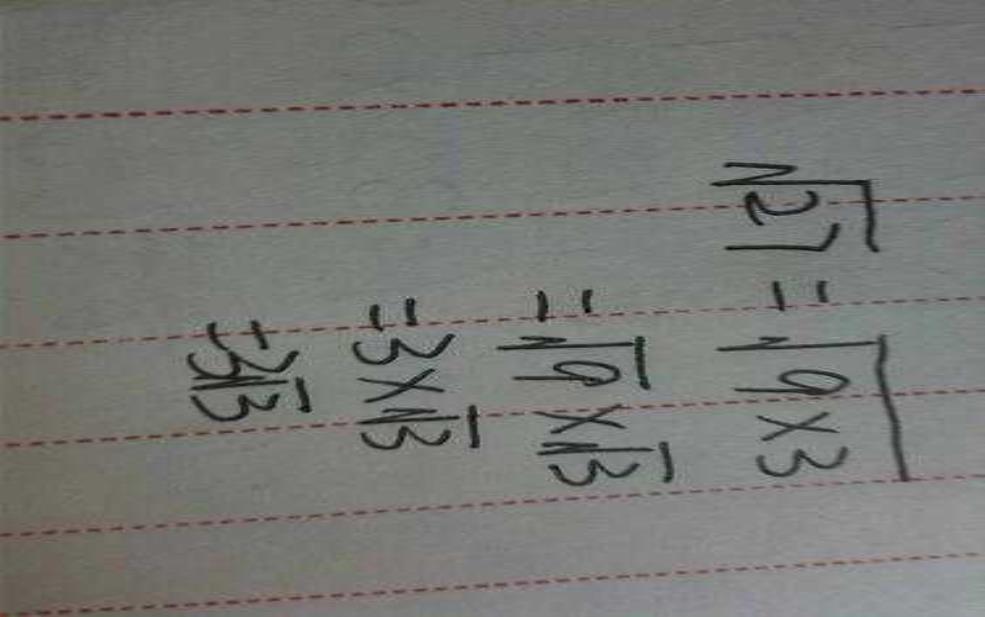 √27 = √9×3
= √9 × √3
= 3 × √3
= 3√3